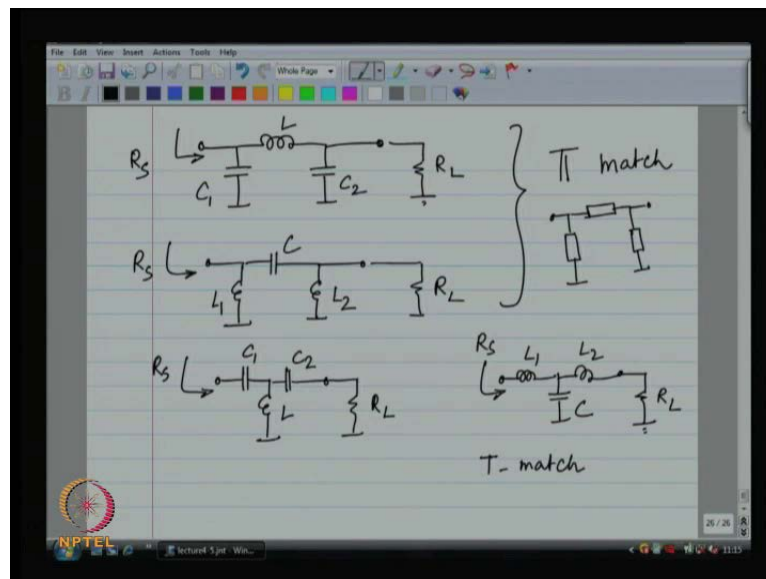 File Edit View Insert Actions Tools Help
Whole Page
B I
L
R_S C_1 C_2 R_L
Π match
C
R_S L_1 L_2 R_L
C_1 C_2
R_S L R_L
R_S L_1 L_2
C R_L
T-match
26 / 26
NPTEL
lecture4-5.jnt - Win...
11:15